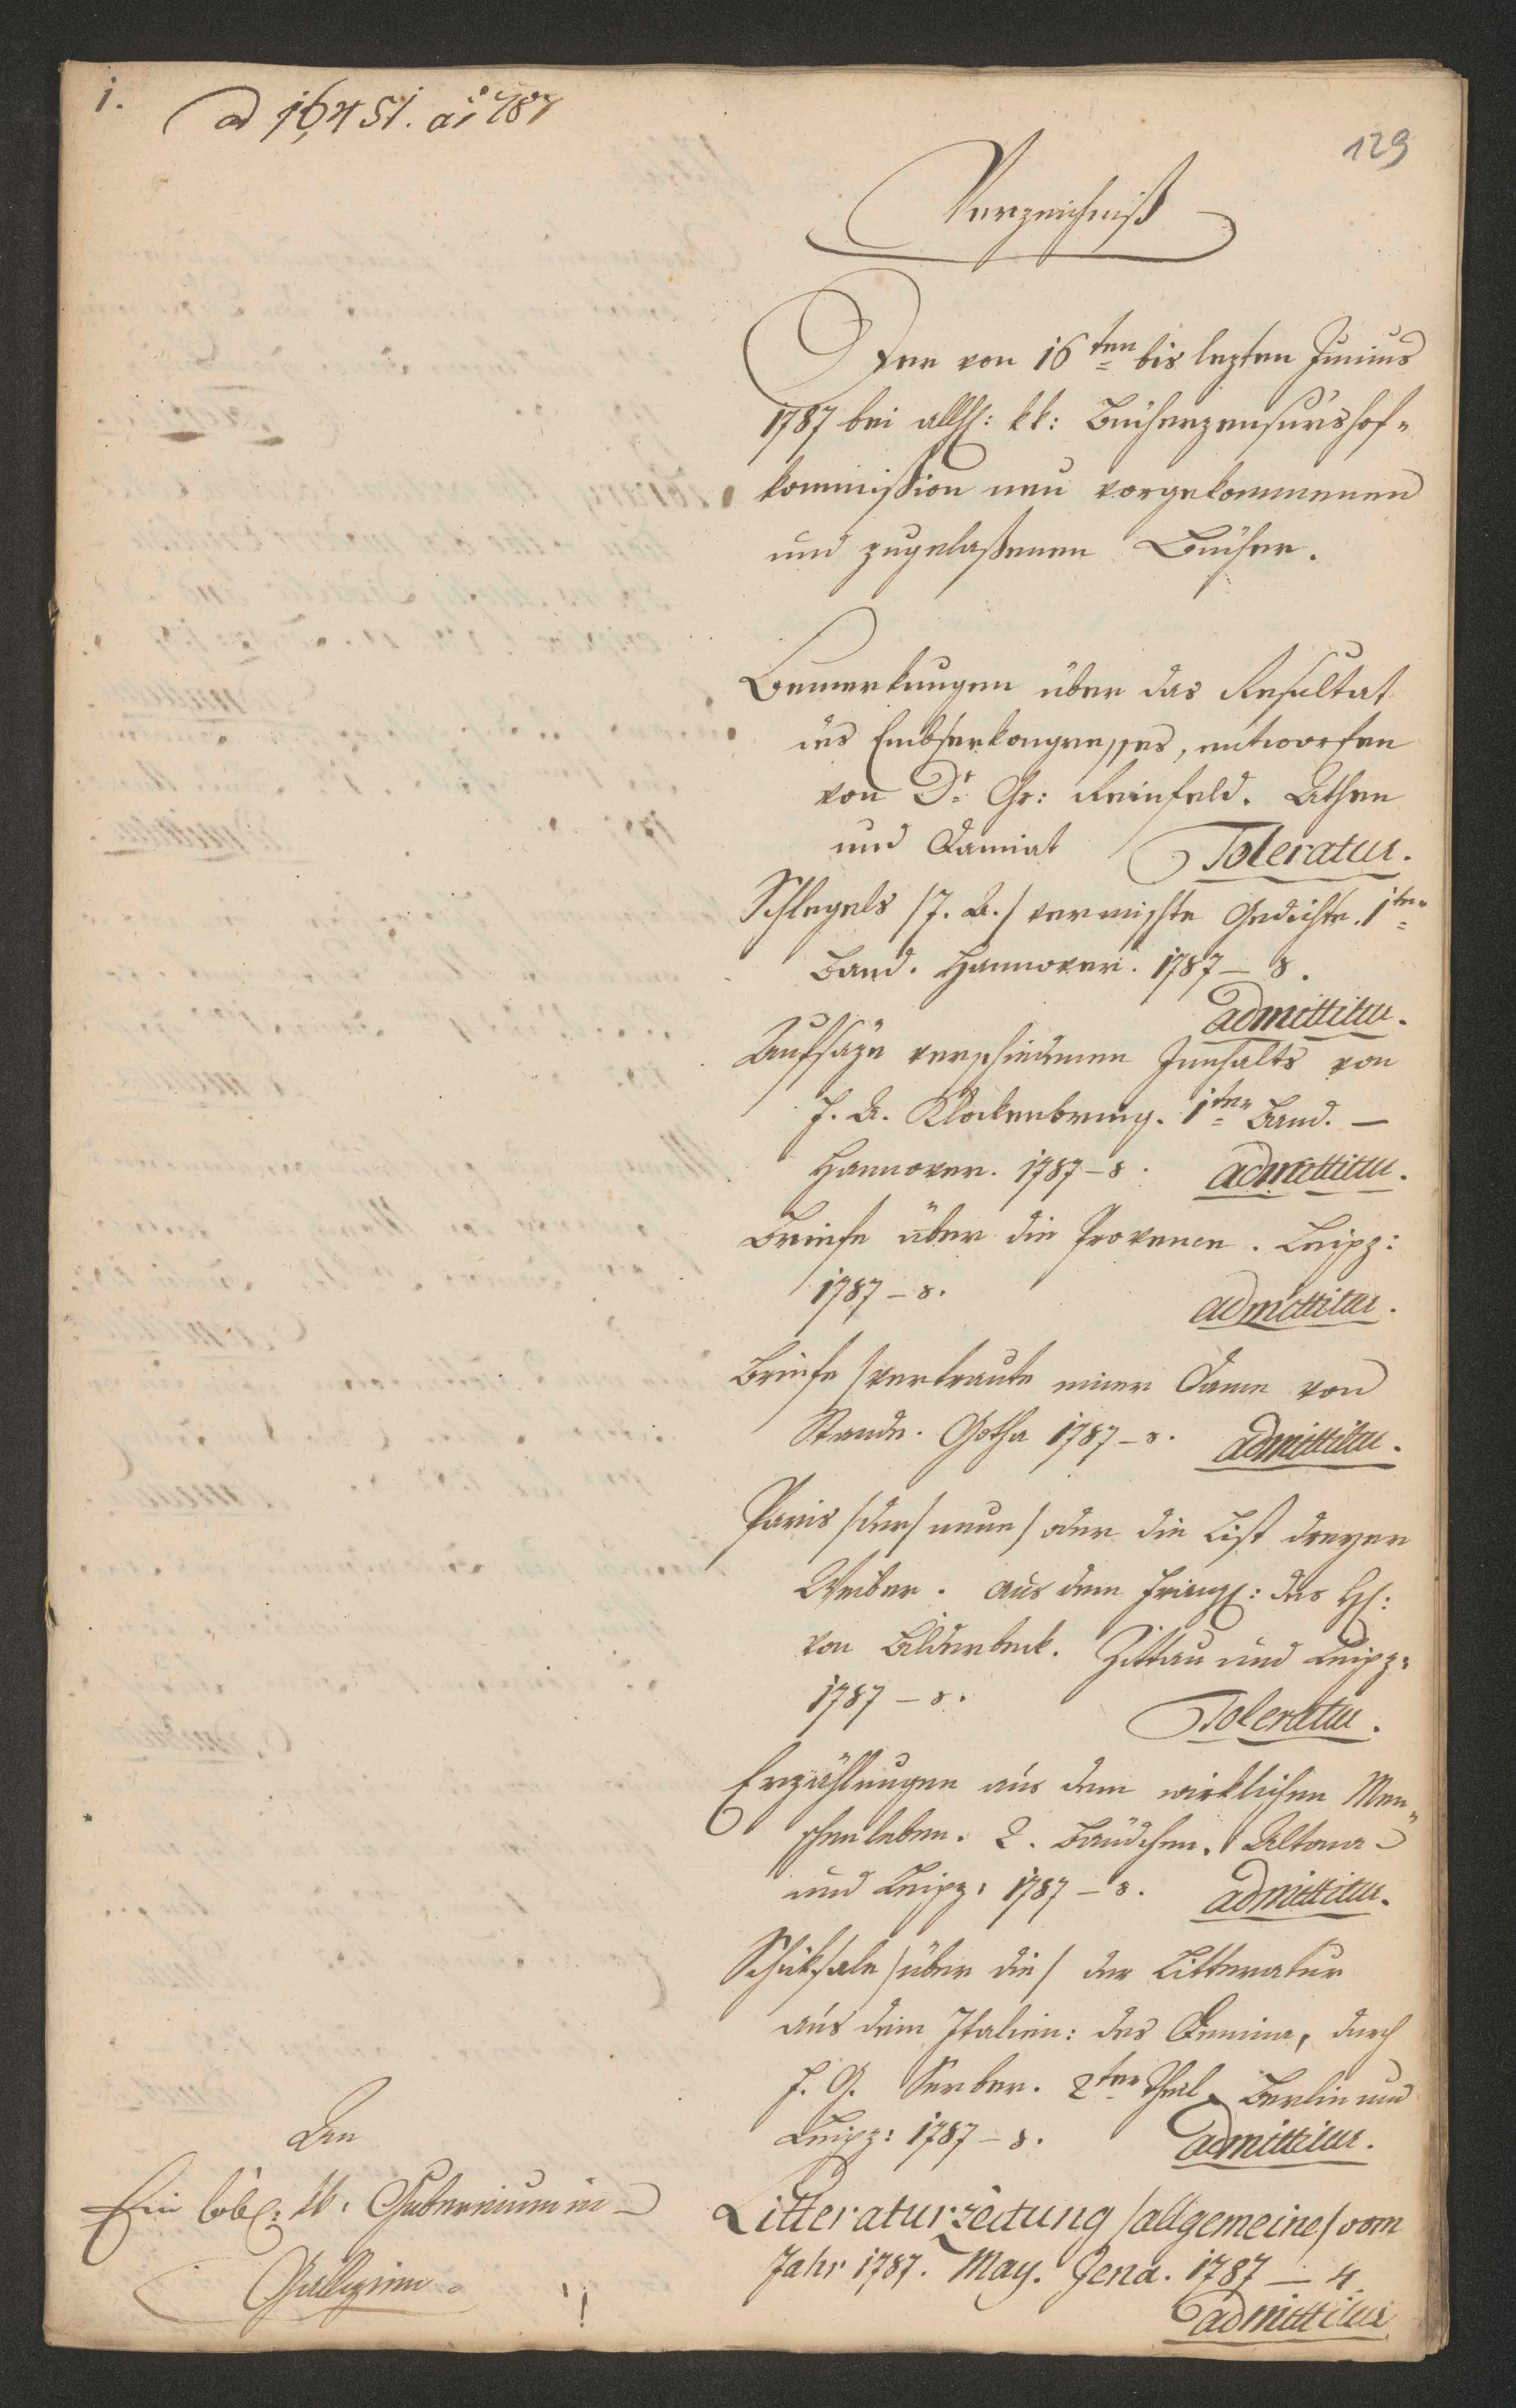 1.
ad 16451. ai 787
129
Verzeichniß
Der von 16ten bis lezten Junius
1787 bei allh: kk: Bücherzensurshof-
kommission neu vorgekommenen
und zugelaßenen Bücher.
Bemerkungen über das Resultat
des Embserkongresses, entworfen
von Dr. Gr: Reinfeld. Athen
und Damiat Toleratur.
Schlegels /J. A./ vermischte Gedichte. 1ter
Band. Hannover. 1787 – 8.
admittitur.
Aufsäze verschiedenen Innhalts von
F. A. Klockenbring. 1ter Band. –
Hannover. 1787 – 8. admittitur.
Briefe über die Provence. Leipz:
1787 – 8.
admittitur.
Briefe /vertraute einer Dame von
Stande. Gotha 1787 – 8. admittitur.
Paris /der/ neue/ oder die List dreyer
Weiber. aus dem Französ: des H:
von Bilderbeck. Zittau und Leipz:
1787 – 8.
Toleratur.
Erzählungen aus dem wirklichen Men-
schenleben. 2. Bändchen. Altona
und Leipz: 1787 – 8. admittitur.
Schiksale /über die/ der Litteratur
aus dem Italien: des Denina, durch
F. G. Serben. 2ter Theil. Berlin und
Leipz: 1787 – 8. admittitur.
Litteraturzeitung /allgemeine/ vom
Jahr 1787. May. Jena. 1787 – 4.
admittitur
An
Ein löbl: kk: Gubernium in
Gallizien.